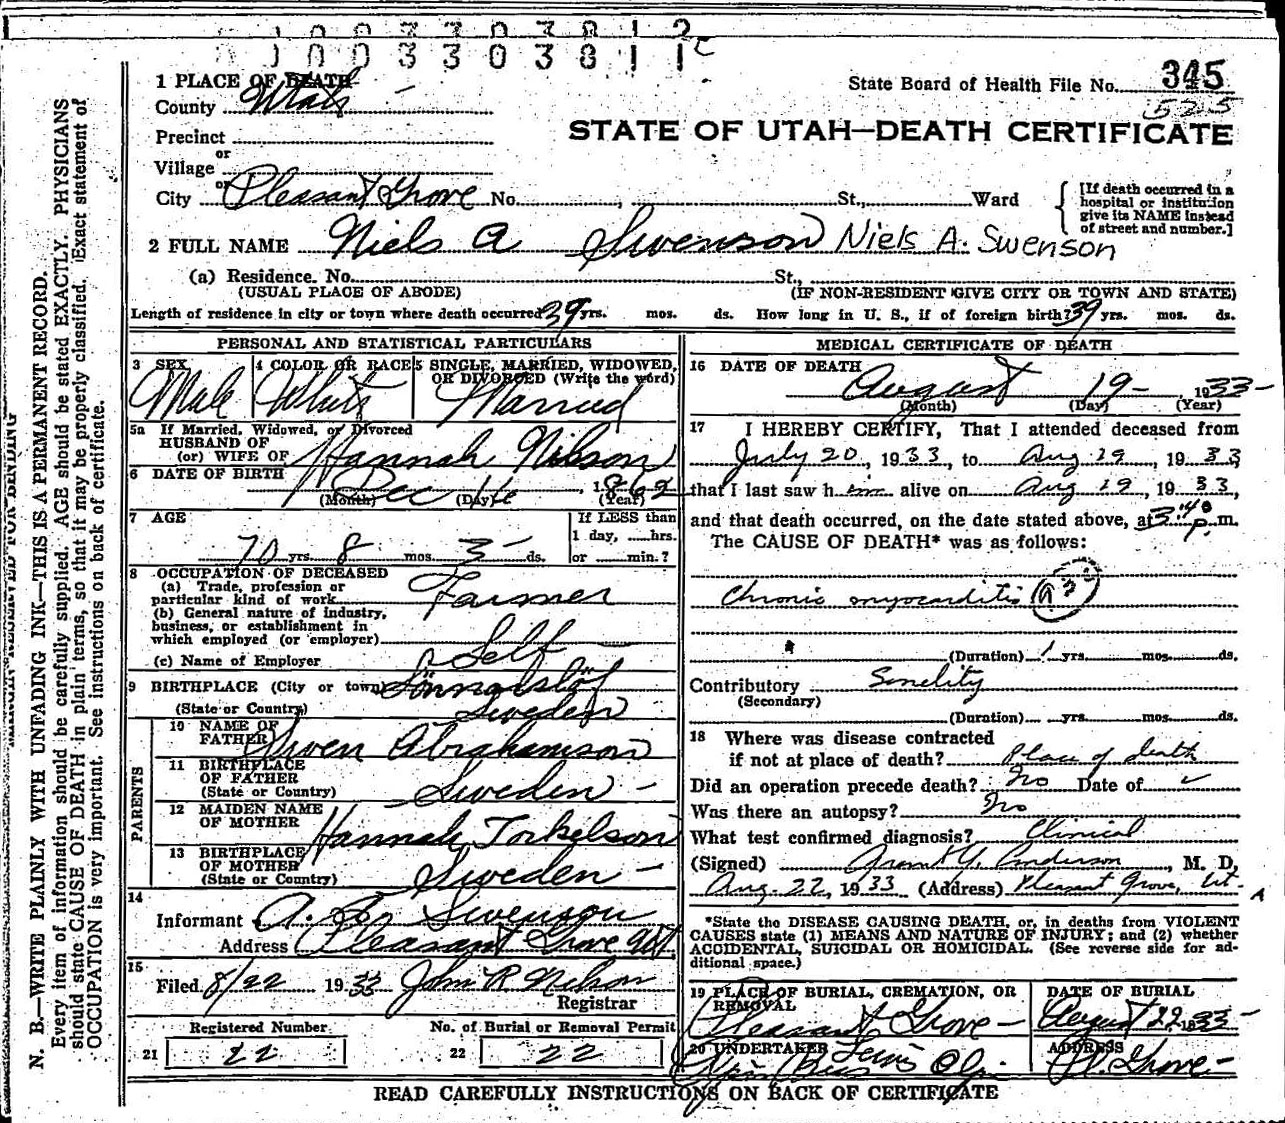 1003303811
State Board of Health File No. 345
525
1 PLACE OF DEATH
County Utah
STATE OF UTAH—DEATH CERTIFICATE
Precinct
or
Village
or
City Pleasant Grove No. , St., Ward
[If death occurred in a hospital or institution give its NAME instead of street and number.]
2 FULL NAME Niels A Swenson Niels A. Swenson
(a) Residence. No. St.,
(USUAL PLACE OF ABODE) (IF NON-RESIDENT GIVE CITY OR TOWN AND STATE)
Length of residence in city or town where death occurred 39 yrs. mos. ds. How long in U. S., if of foreign birth? 39 yrs. mos. ds.
PERSONAL AND STATISTICAL PARTICULARS
3 SEX 4 COLOR OR RACE 5 SINGLE, MARRIED, WIDOWED, OR DIVORCED (Write the word)
Male White Married
5a If Married, Widowed, or Divorced
HUSBAND OF
(or) WIFE OF Hannah Nilson
6 DATE OF BIRTH
Dec 16, 1862
(Month) (Day) (Year)
7 AGE If LESS than
1 day, hrs.
70 yrs. 8 mos. 3 ds. or min.?
8 OCCUPATION OF DECEASED
(a) Trade, profession or
particular kind of work Farmer
(b) General nature of industry,
business, or establishment in
which employed (or employer) Self
(c) Name of Employer
9 BIRTHPLACE (City or town) Lönnarslöf
(State or Country) Sweden
PARENTS
10 NAME OF
FATHER Swen Abrahamson
11 BIRTHPLACE
OF FATHER
(State or Country) Sweden
12 MAIDEN NAME
OF MOTHER Hannah Torkelson
13 BIRTHPLACE
OF MOTHER
(State or Country) Sweden
14
Informant Swenson
Address Pleasant Grove Ut
15
Filed 8/22 1933 John R Nelson
Registrar
Registered Number No. of Burial or Removal Permit
21 22 22 22
MEDICAL CERTIFICATE OF DEATH
16 DATE OF DEATH
August 19 1933
(Month) (Day) (Year)
17 I HEREBY CERTIFY, That I attended deceased from
July 20, 1933, to Aug 19, 1933
that I last saw h im alive on Aug 19, 1933,
and that death occurred, on the date stated above, at 3:40 p.m.
The CAUSE OF DEATH* was as follows:
Chronic myocarditis
(Duration) 1 yrs. mos. ds.
Contributory Senility
(Secondary)
(Duration) yrs. mos. ds.
18 Where was disease contracted
if not at place of death? Place of death
Did an operation precede death? No Date of
Was there an autopsy? No
What test confirmed diagnosis? Clinical
(Signed) Grant Y. Anderson, M. D.
Aug. 22, 1933 (Address) Pleasant Grove, Ut.
*State the DISEASE CAUSING DEATH, or, in deaths from VIOLENT
CAUSES state (1) MEANS AND NATURE OF INJURY; and (2) whether
ACCIDENTAL, SUICIDAL OR HOMICIDAL. (See reverse side for ad-
ditional space.)
19 PLACE OF BURIAL, CREMATION, OR REMOVAL DATE OF BURIAL
Pleasant Grove August 22 1933
20 UNDERTAKER ADDRESS
Pl. Grove
READ CAREFULLY INSTRUCTIONS ON BACK OF CERTIFICATE
N. B.—WRITE PLAINLY WITH UNFADING INK—THIS IS A PERMANENT RECORD.
Every item of information should be carefully supplied. AGE should be stated EXACTLY. PHYSICIANS
should state CAUSE OF DEATH in plain terms, so that it may be properly classified. Exact statement of
OCCUPATION is very important. See instructions on back of certificate.